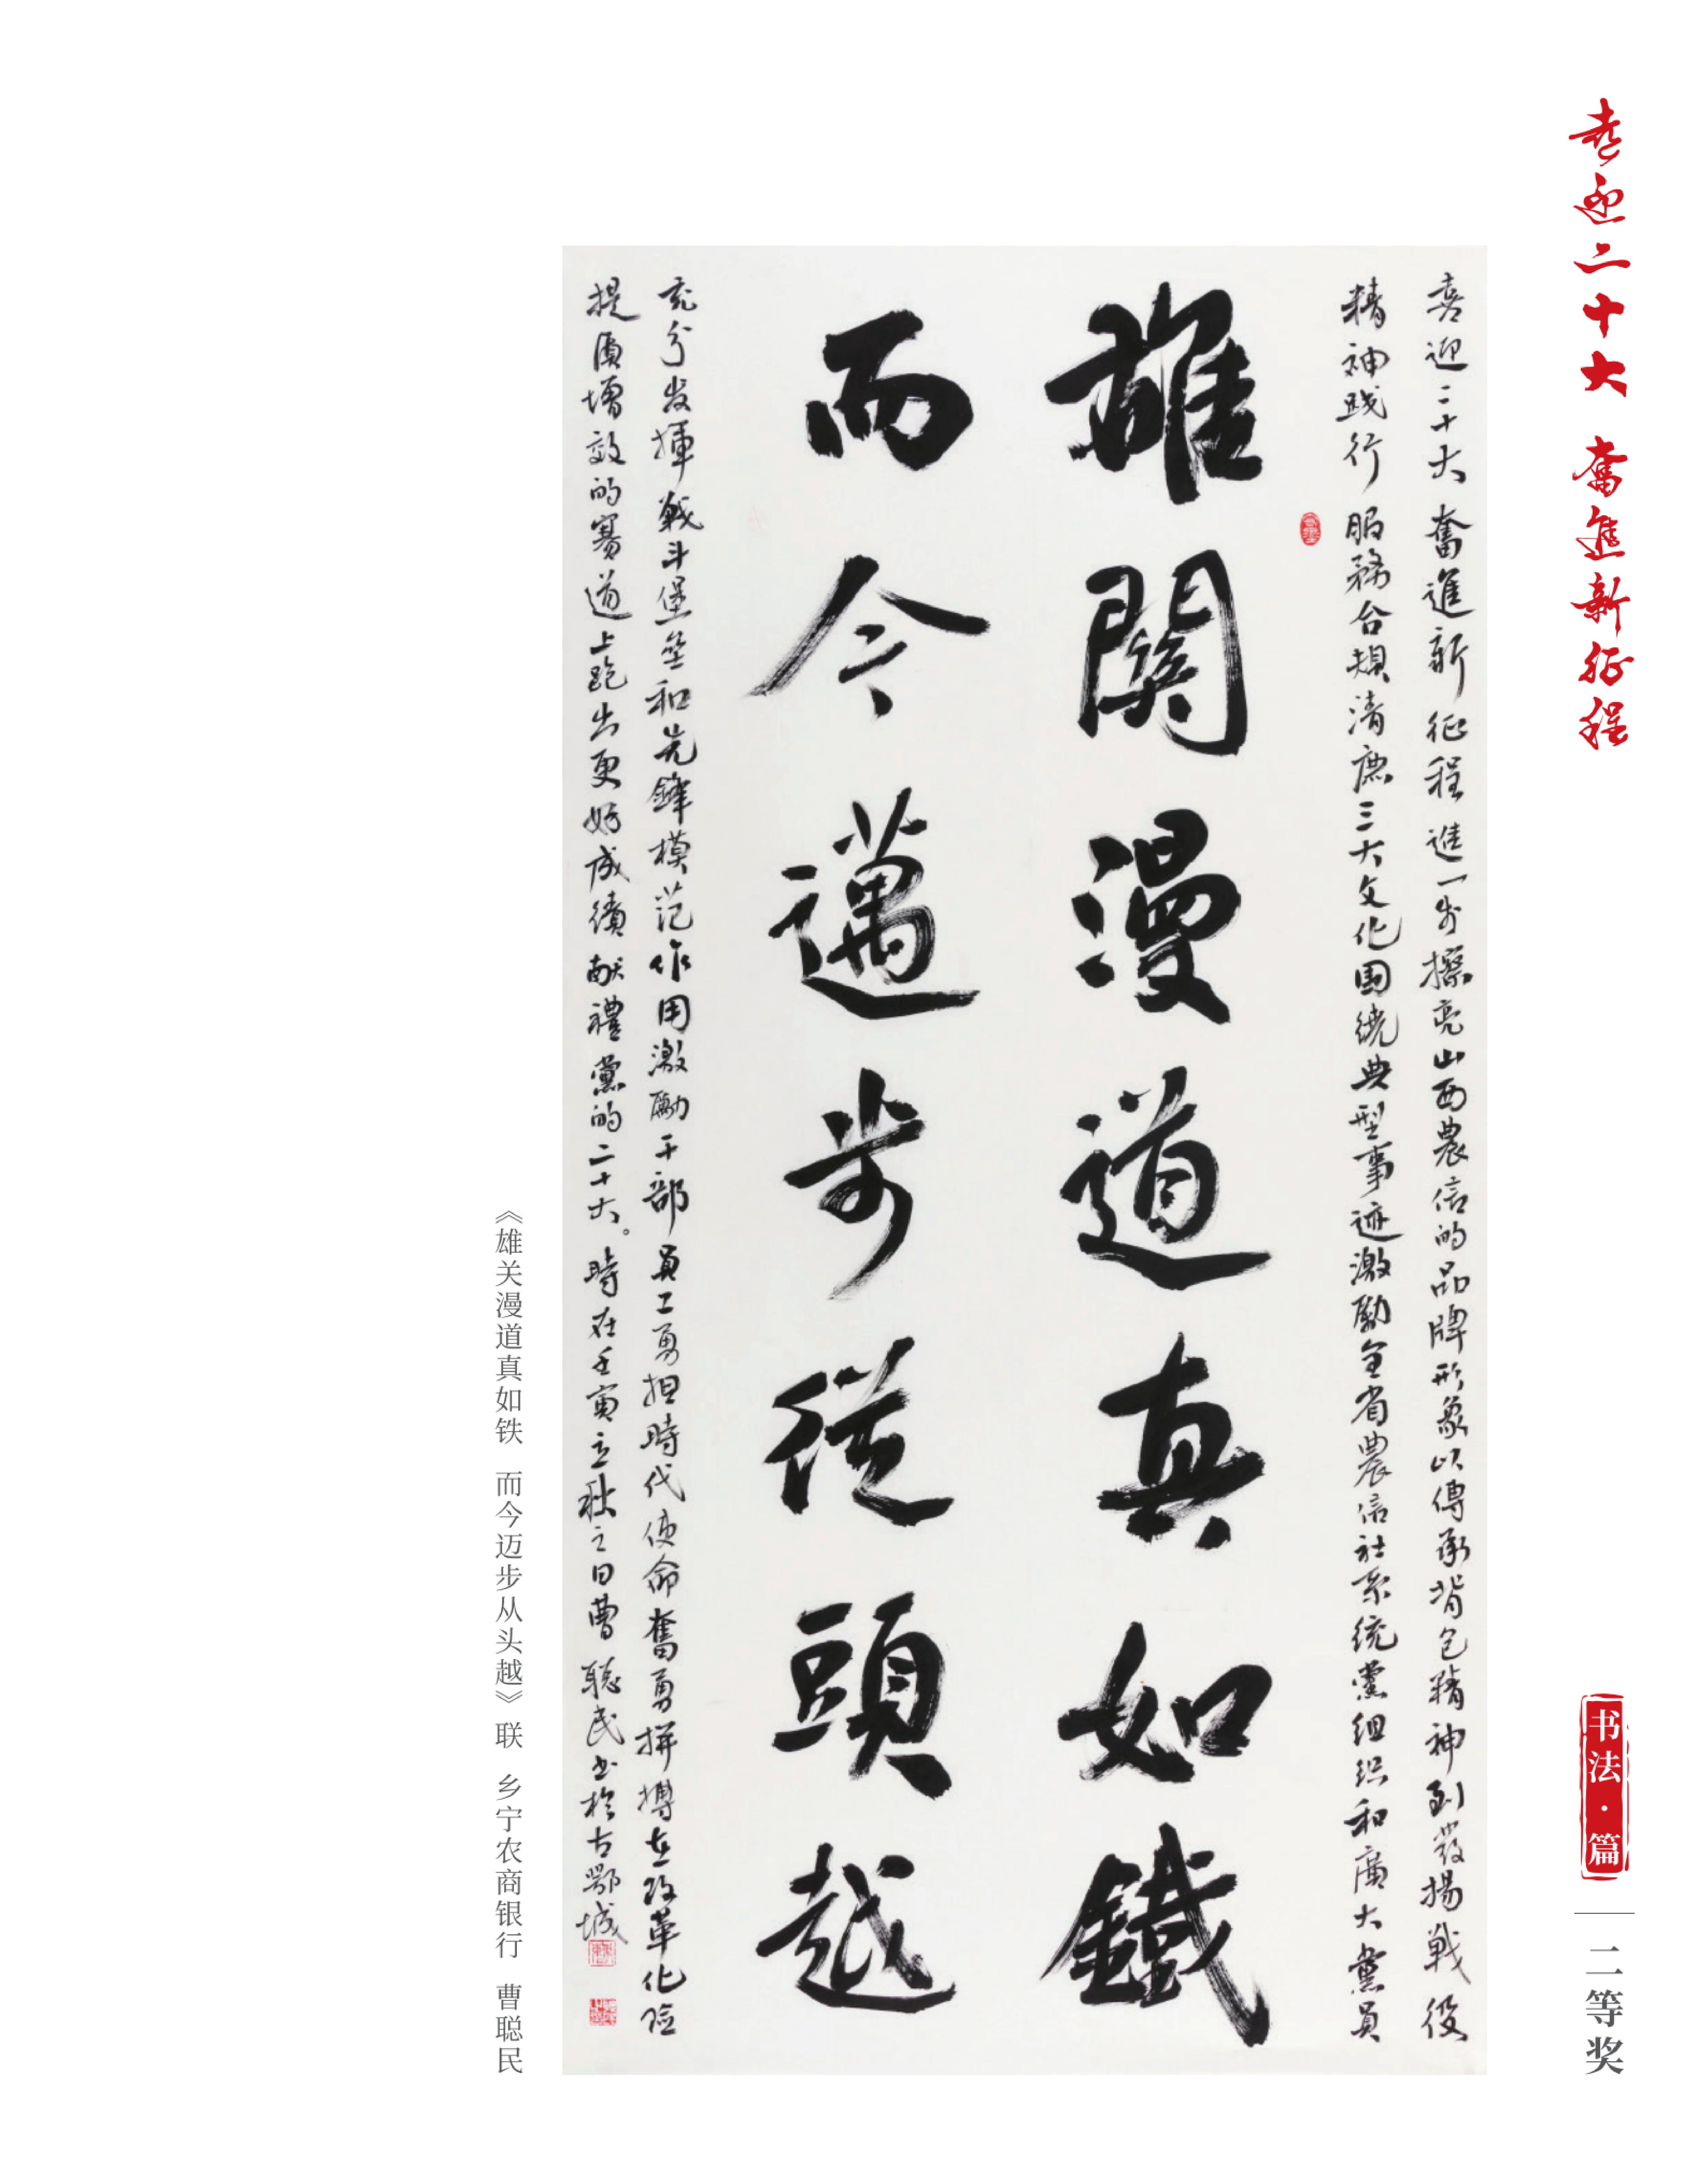 喜迎二十大 奮進新征程
书法·篇
二等奖
喜迎二十大奮進新征程進一步擦亮山西農信的品牌形象以傳承背包精神到發揚戰役
精神踐行服務合規清廉三大文化围绕典型事迹激勵全省農信社系统黨组织和廣大黨員
雄關漫道真如鐵
而今邁步從頭越
充分发揮戰斗堡垒和先鋒模范作用激勵干部員工勇担時代使命奮勇拼搏在改革化险
提质增效的賽道上跑出更好成績献禮黨的二十大。時在壬寅立秋之日曹聪民书於古鄂城
《雄关漫道真如铁 而今迈步从头越》联 乡宁农商银行 曹聪民